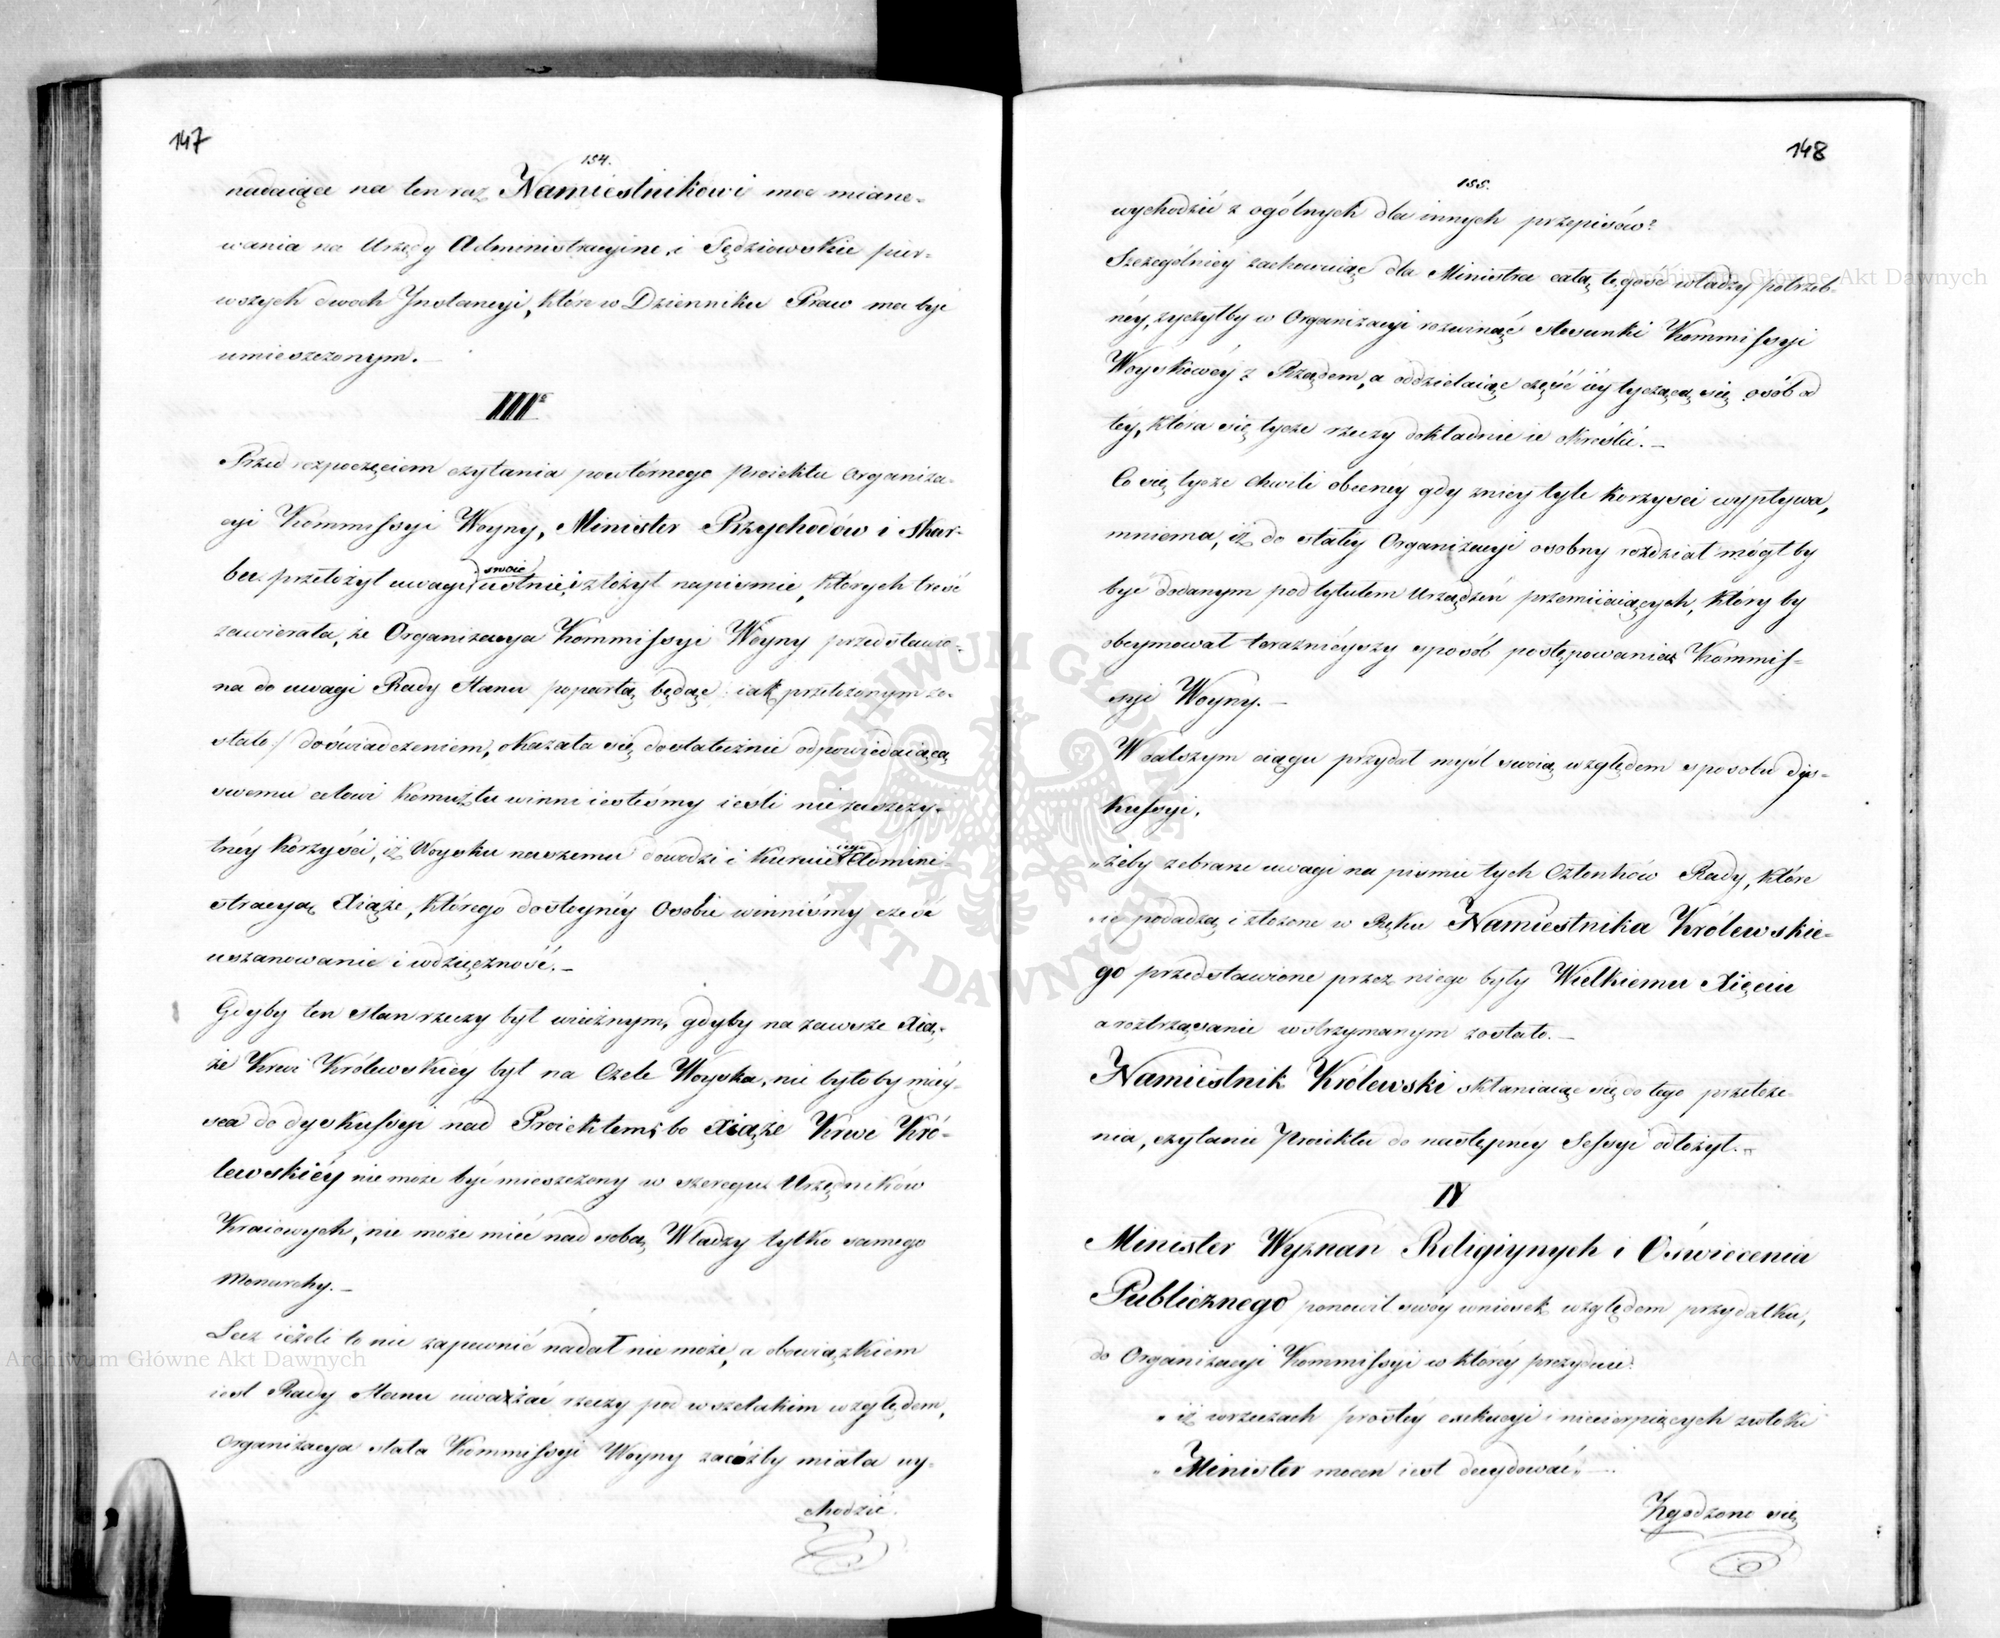 147
154.
nadaiące na ten raz Namiestnikowi moc miano-
wania na Urzędy Administracyine, i Sędziowskie pier-
wszych dwoch Jnstancyi, które w Dzienniku Praw ma być
umieszczonym. —
III°
Przed rozpoczęciem czytania powtórnego Proiektu Organiza-
cyi Kommissyi Woyny, Minister Przychodów i Skar-
bu przełożył uwagi swoie ustnie, i złożył na piśmie, których treść
zawierała, że Organizacya Kommissyi Woyny przedstawio-
na do uwagi Rady Stanu popartą będąc /: iak przełożonym zo-
stało :/ doświadczeniem, okazała się dostatecznie odpowiedaiącą
swemu celowi Komuż tu winni iesteśmy ieśli nie zaszczy-
tnéy korzyści, iż Woysku naszemu dowodzi i kieruie iego Admini-
stracyą Xiąże, którego dostoynéy Osobie winniśmy cześć
uszanowanie i wdzięczność. —
Gdyby ten stan rzeczy był wiecznym, gdyby na zawsze Xią-
że Krwi Królewskiéy był na Czele Woyska, nie byłoby miéy-
sca do dyskussyi nad Proiektem, bo Xiąże Krwi Kró-
lewskiéy nie może być mieszczony w szeregu Urzędników
Kraiowych, nie może mieć nad sobą Władzy tylko samego
Monarchy. —
Lecz ieżeli to nie zapewnić nadal nie może, a obowiązkiem
iest Rady Stanu uważać rzeczy pod wszelakim względem,
Organizacya stała Kommissyi Woyny zacóżby miała wy-
chodzić.
148
155.
wychodzić z ogólnych dla innych przepisów?
Szczególniey zachowuiąc dla Ministra całą tęgość władzy potrzeb-
néy, życzyłby w Organizacyi rozwinąć stosunki Kommissyi
Woyskowéy z Rządem, a oddzielaiąc część iéy tyczącą się osób od
téy, która się tycze rzeczy dokładnie ie określić. —
Co się tycze chwili obecnéy gdy z niey tyle korzyści wypływa,
mniema, iż do stałéy Organizacyi osobny rozdział mógłby
być dodanym pod tytułem Urządzeń przemiiaiących, któryby
obeymował teraznieyszy sposób postępowania Kommis-
syi Woyny. —
W dalszym ciągu przydał myśl swoią względem sposobu dys-
kussyi,
„żeby zebrane uwagi na piśmie tych Członków Rady, które
ie podadzą i złożone w Ręku Namiestnika Królewskie-
go przedstawione przez niego były Wielkiemu Xięciu
a roztrząsanie wstrzymanym zostało. —
Namiestnik Królewski skłaniaiąc się do tego przełoże-
nia, czytanie Proiektu do następney Sessyi odłożył. —
IV
Minister Wyznań Religiynych i Oświecenia
Publicznego ponowił swóy wniosek względem przydatku,
do Organizacyi Kommissyi w któréy prezyduie:
„ iż w rzeczach prostéy exekucyi i niecierpiących zwłoki
„ Minister mocen iest decydować„ —
Zgodzono się
Archiwum Główne Akt Dawnych
Archiwum Główne Akt Dawnych
ARCHIWUM GŁÓWNE AKT DAWNYCH